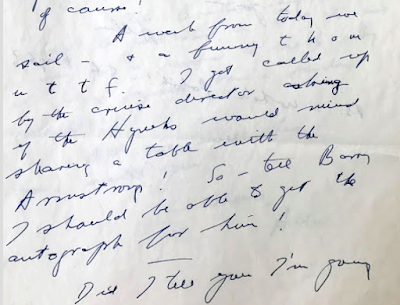 of course!
A week from today we
sail – & a funny t h o m
w t t f. I got called up
by the cruise director asking
if the Hyneks would mind
sharing a table with the
Armstrongs! So – tell Barry
I should be able to get the
autograph for him!
Did I tell you I'm going